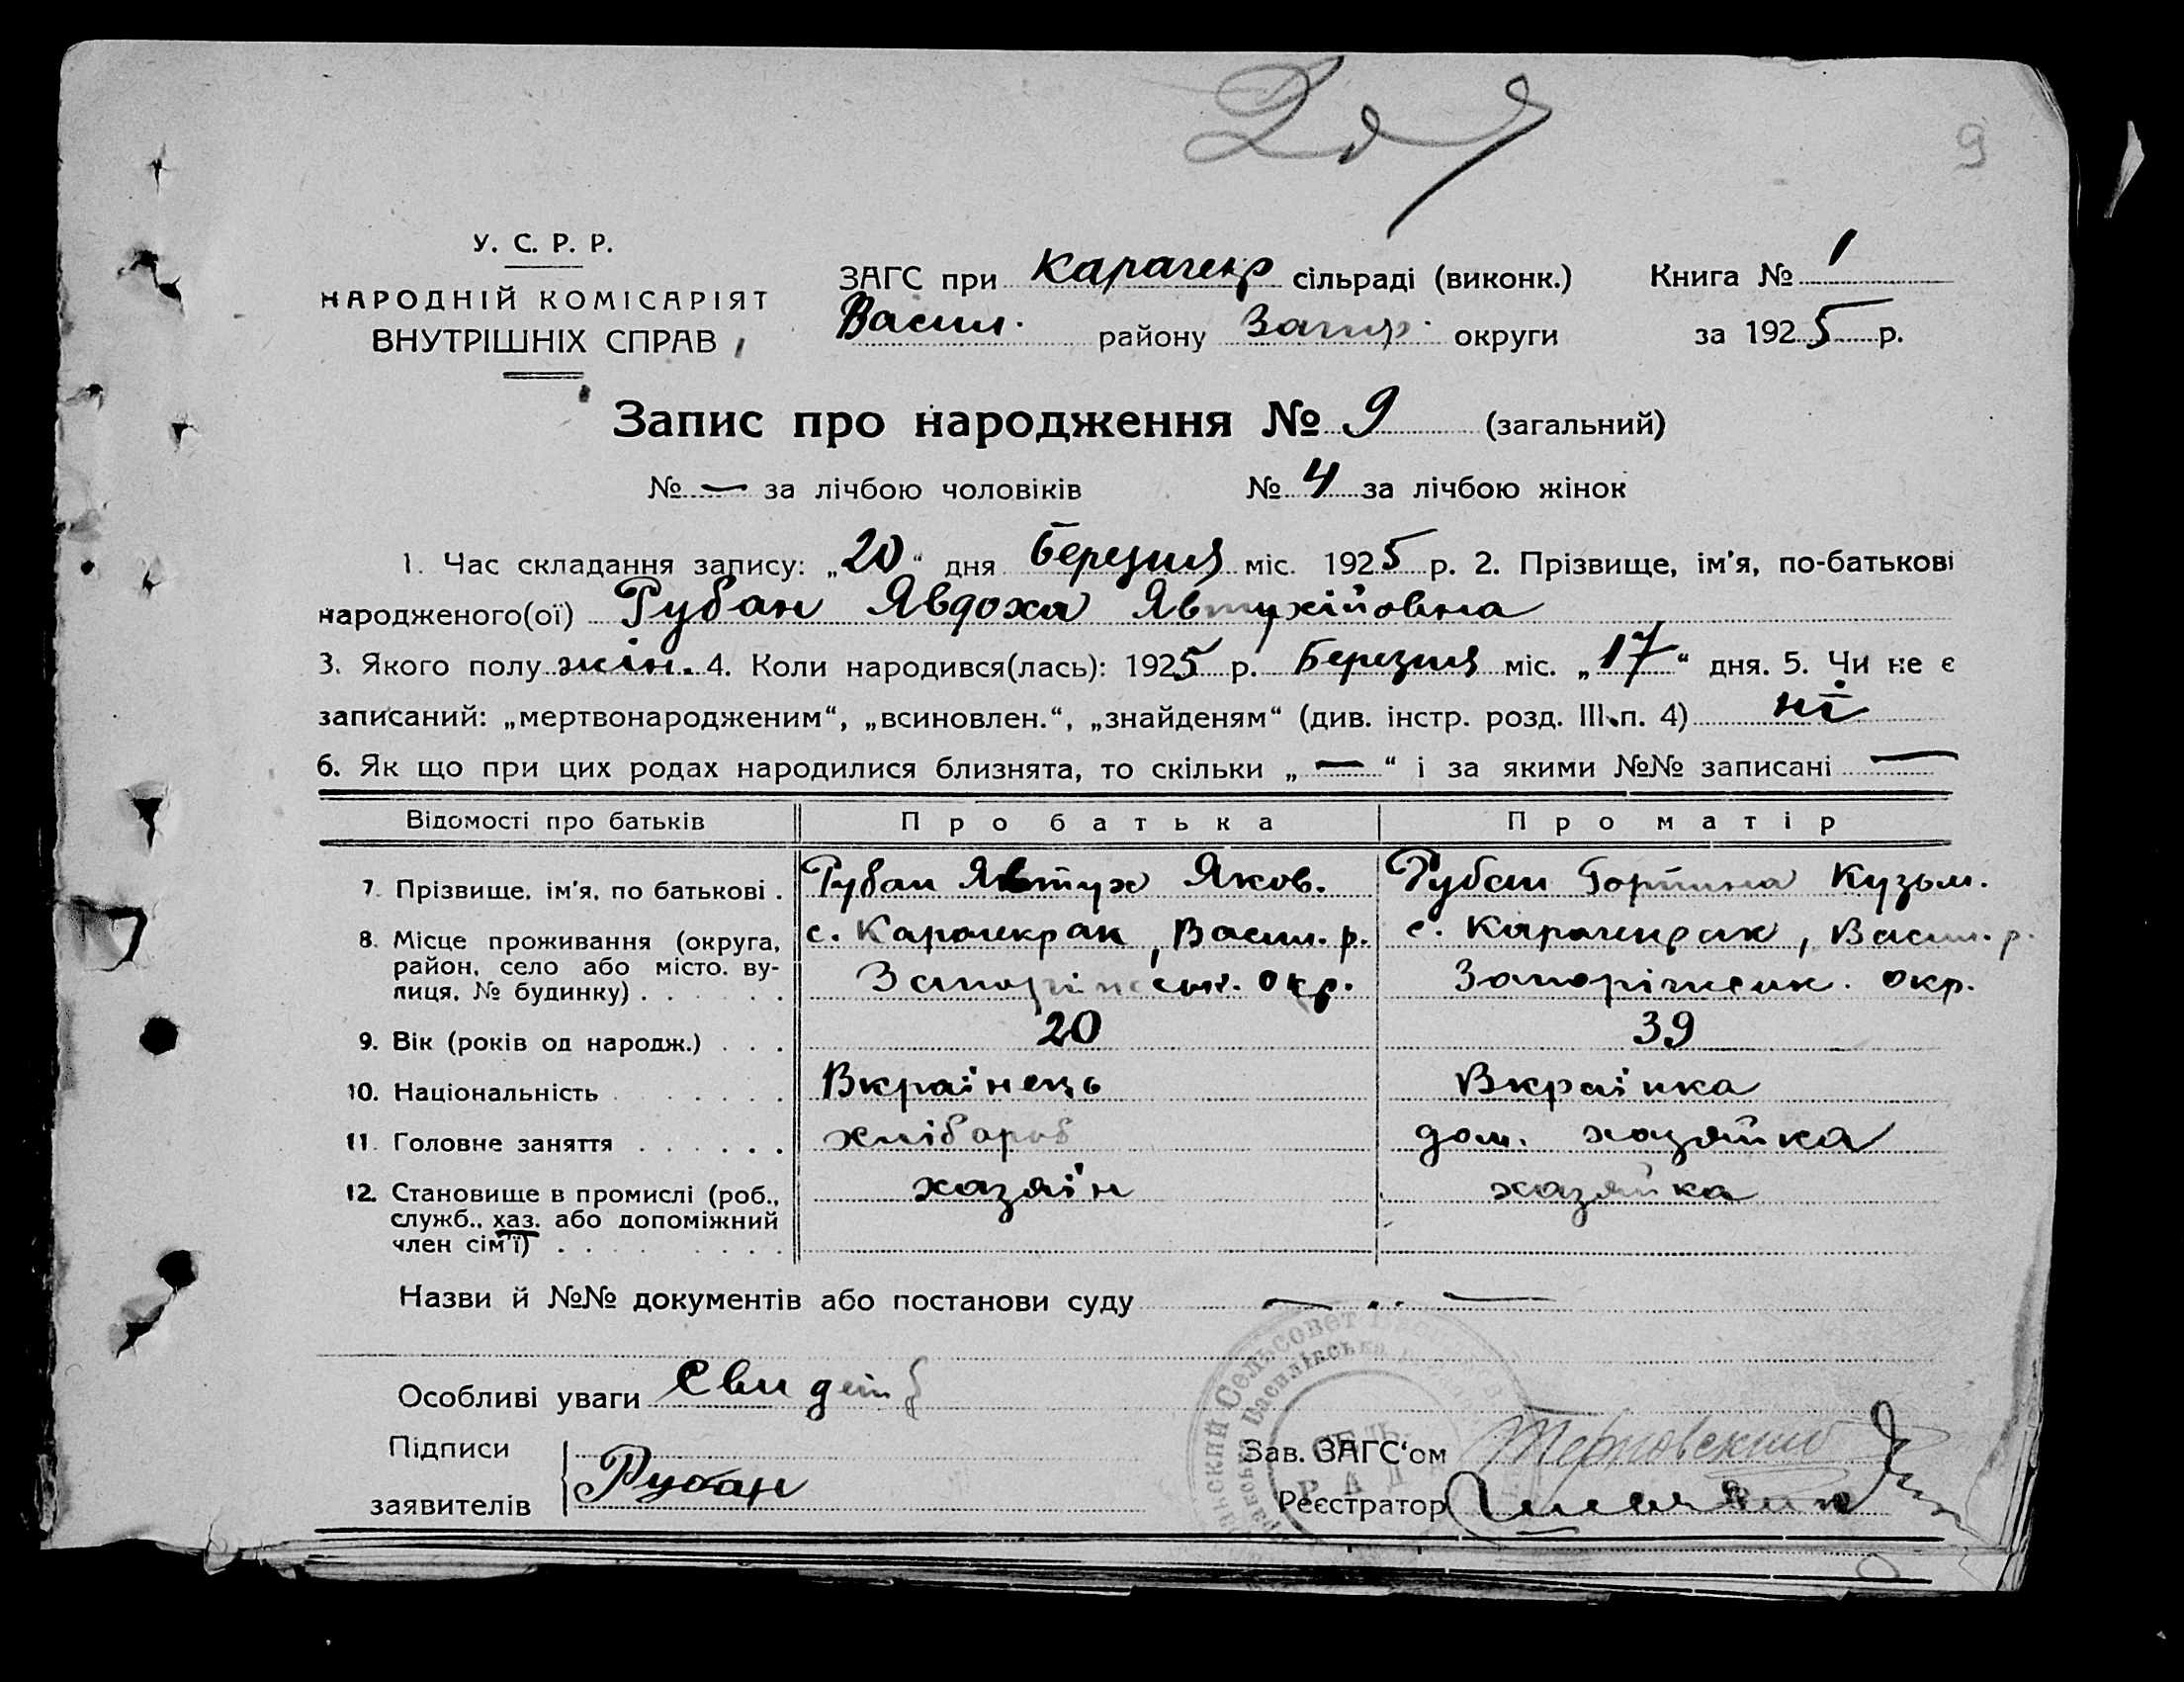 9
У. С. Р. Р.
НАРОДНІЙ КОМІСАРІЯТ
ВНУТРІШНІХ СПРАВ
ЗАГС при Карачекр сільраді (виконк.) Книга № 1
Васил. району Запор. округи за 1925 р.
Запис про народження № 9 (загальний)
№ — за лічбою чоловіків № 4 за лічбою жінок
1. Час складання запису: „20" дня березня міс. 1925 р. 2. Прізвище, ім'я, по-батькові
народженого(ої) Рубан Явдоха Явтухійовна
3. Якого полу жін. 4. Коли народився(лась): 1925 р. Березня міс. „17" дня. 5. Чи не є
записаний: „мертвонародженим", „всиновлен.", „знайденям" (див. інстр. розд. III п. 4) ні
6. Як що при цих родах народилися близнята, то скільки „—" і за якими №№ записані —
Відомості про батьків Про батька Про матір
7. Прізвище, ім'я, по батькові . Рубан Явтух Яков. Рубан Горпина Кузьм.
8. Місце проживання (округа, с. Карачекрак, Васил. р. с. Карачекрак, Васил. р.
район, село або місто, ву-
лиця, № будинку) . . . . . Запоріжськ. окр. Запоріжськ. окр.
9. Вік (років од народж.) . . . 20 39
10. Національність . . . . . . . Вкраїнець Вкраїнка
11. Головне заняття . . . . . . хлібороб дом. хазяйка
12. Становище в промислі (роб., хазяїн хазяйка
служб., хаз. або допоміжний
член сім'ї) . . . . . . . . .
Назви й №№ документів або постанови суду — „ —
Особливі уваги
Підписи Зав. ЗАГС'ом Терновский
заявителів Рубан Реєстратор
СЕЛЬ-
РАДА